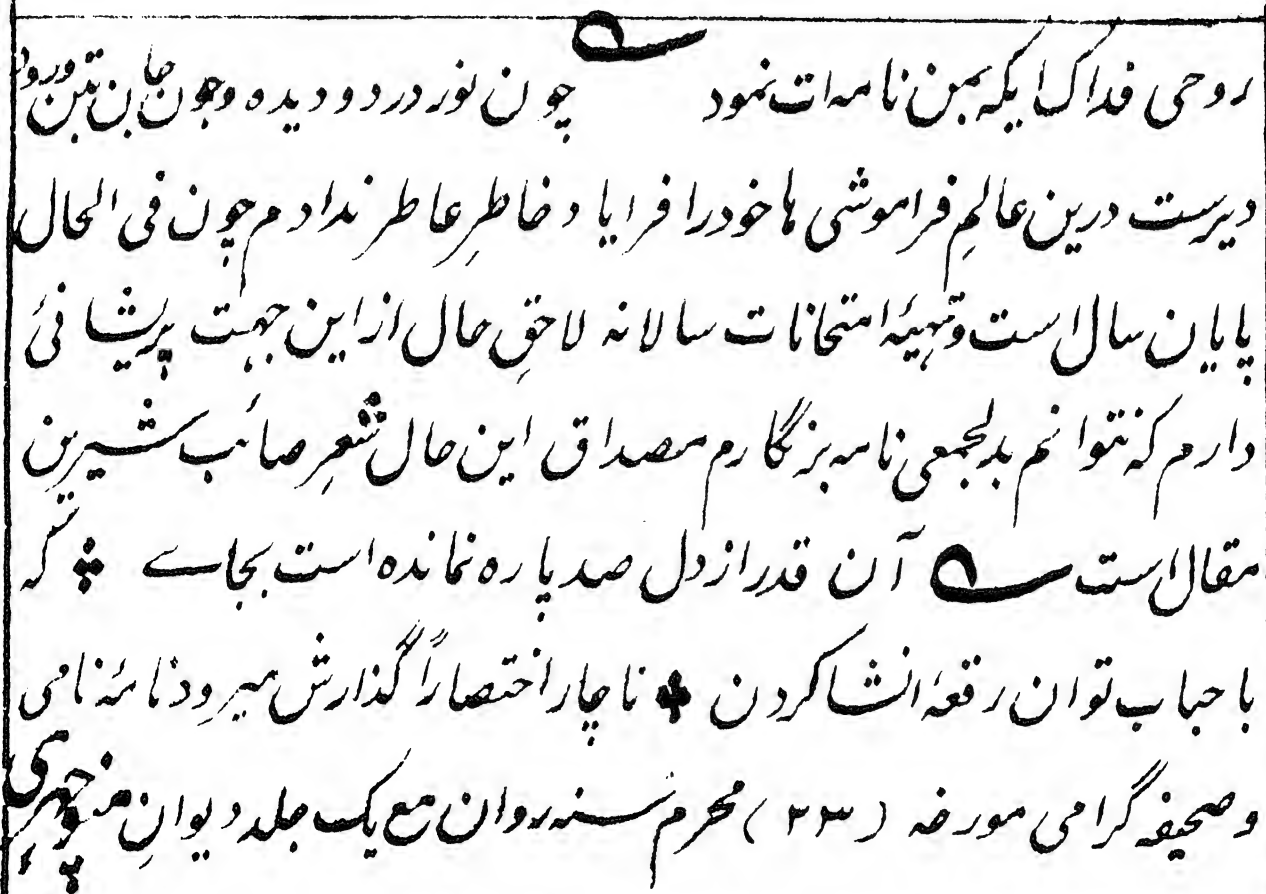 روحی فداک ایکه بمن نامه ات نمود چون نور در دو دیده و چون جان بتن ورود
دیرست درین عالمِ فراموشی ها خود را فرا یاد خاطرِ عاطر ندادم چون فی الحال
پایان سال است و تهیهٔ امتحانات سالانه لاحقِ حال از این جهت پریشانئ
دارم که نتوانم بدلجمعی نامه بر نگارم مصداق این حال شعرِ صائب شیرین
مقال است آن قدر از دل صد پاره نمانده است بجاے ❖ که
باحباب توان رقعه انشا کردن ❖ ناچار اختصاراً گذارش میرود نامهٔ نامی
و صحیفه گرامی مورخه (۲۳) محرم سنه روان مع یک جلد دیوانِ منوچهری